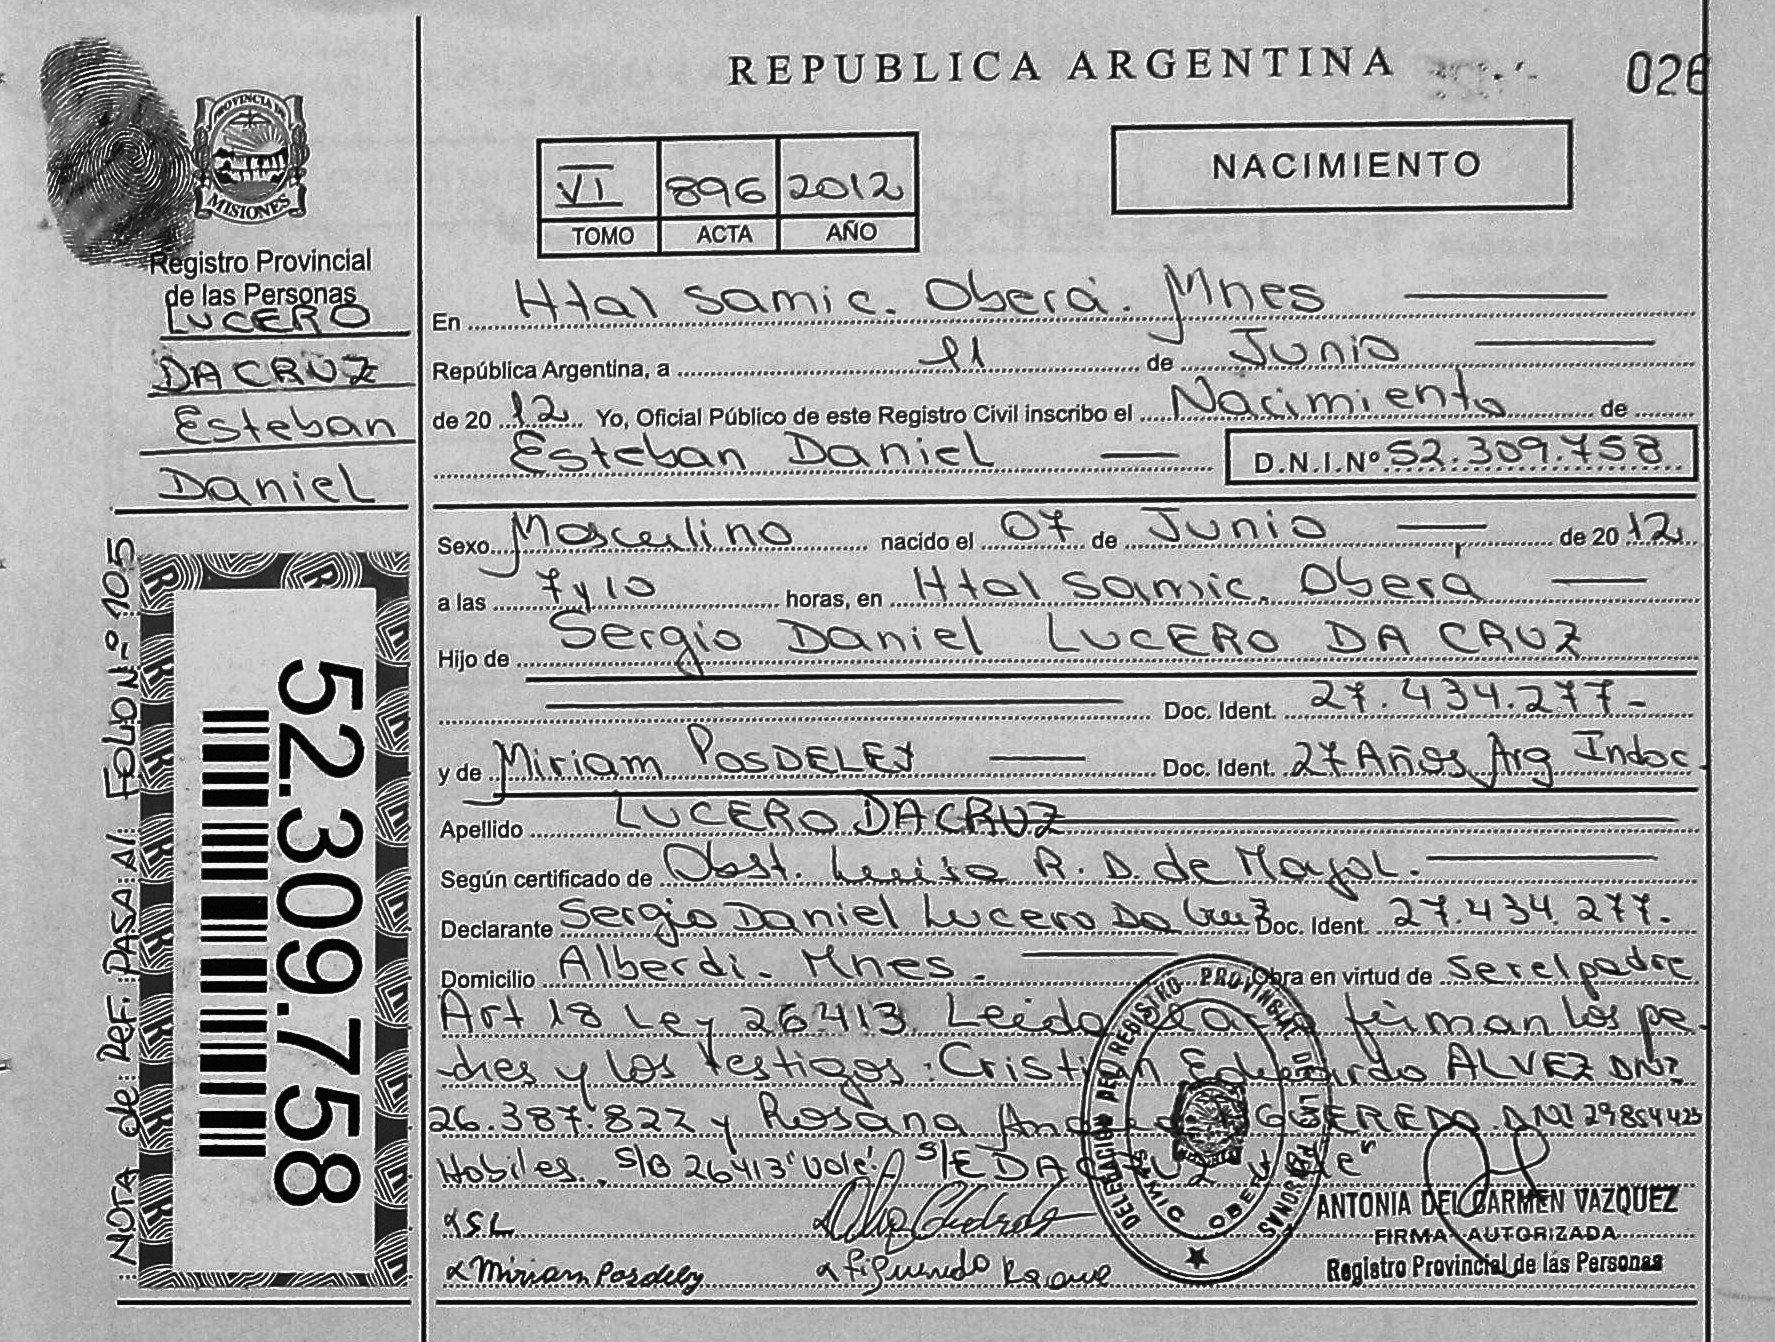 REPUBLICA ARGENTINA
026
PROVINCIA DE
MISIONES
Registro Provincial
de las Personas
LUCERO
DA CRUZ
Esteban
Daniel
NOTA de REF. PASA Al: FOLION-º 105
52.309.758
VI 896 2012
TOMO ACTA AÑO
NACIMIENTO
En Htal Samic. Oberá. Mnes
República Argentina, a 11 de Junio
de 2012 Yo, Oficial Público de este Registro Civil inscribo el Nacimiento de
Esteban Daniel D.N.I.Nº 52.309.758
Sexo Masculino nacido el 07 de Junio de 2012
a las 7 y 10 horas, en Htal Samic. Oberá
Hijo de Sergio Daniel LUCERO DA CRUZ
Doc. Ident. 27.434.277-
y de Miriam POSDELEY Doc. Ident. 27 Años Arg Indoc.
Apellido LUCERO DA CRUZ
Según certificado de Obst. Luisa R. D. de Mayol.
Declarante Sergio Daniel Lucero Da Cruz Doc. Ident. 27.434.277.
Domicilio Alberdi - Mnes. Obra en virtud de ser el padre
Art 18 Ley 26.413. Leida el acta firman los pa-
dres y los testigos: Cristian Eduardo ALVEZ DNI
26.387.822 y Rosana DNI 29854425
Habiles. S/B 26413 "Vale" S/E DA CRUZ "Vale"
SL
Miriam Posdeley
DELEGACIÓN DEL REGISTRO PROVINSIAL DE LAS PERSONAS
OBERA
ANTONIA DEL CARMEN VAZQUEZ
FIRMA AUTORIZADA
Registro Provincial de las Personas